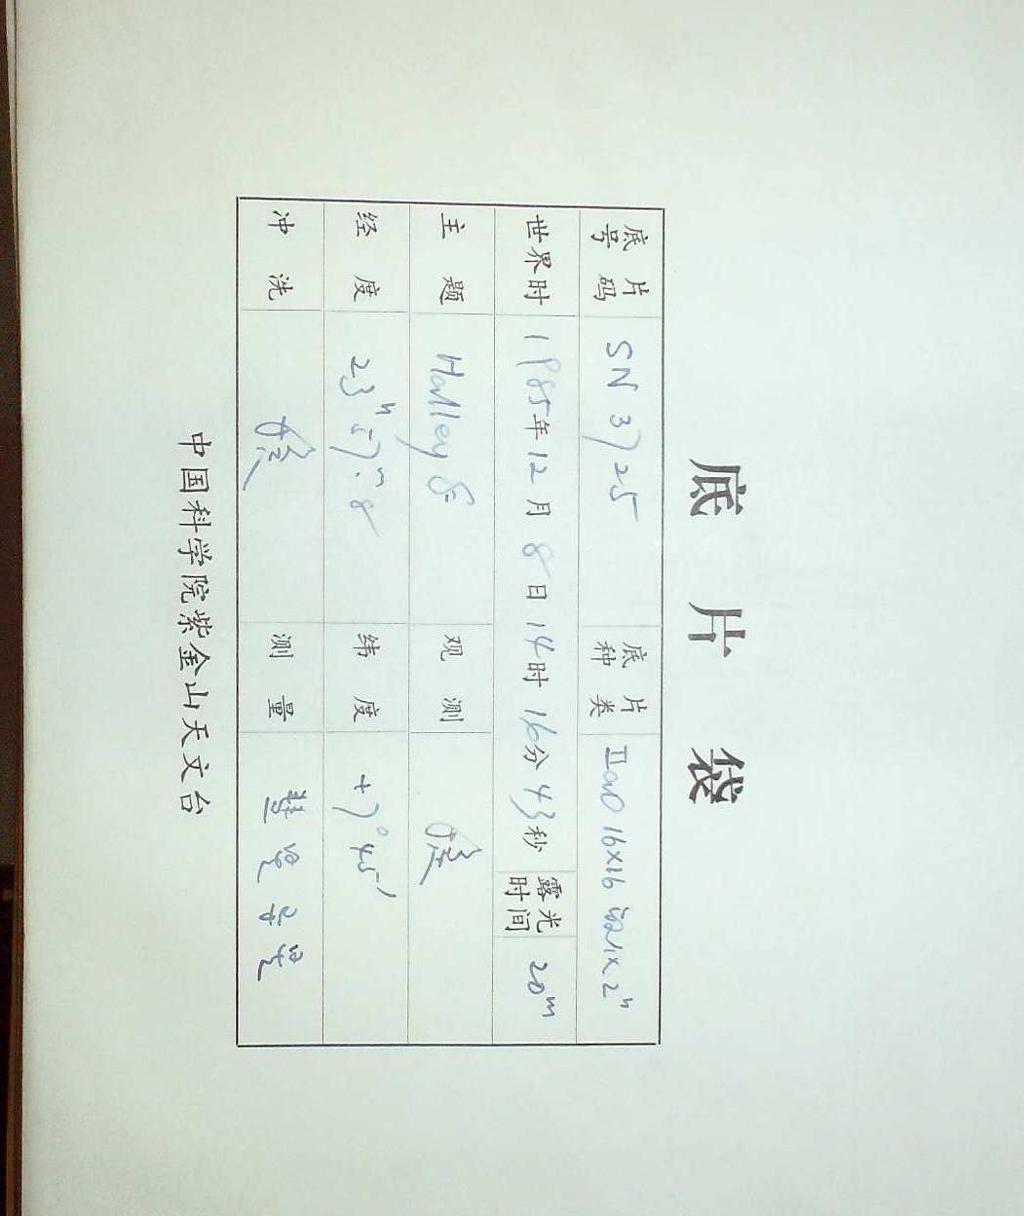 底 片 袋
底片号码 SN 3725 底片种类 IIaO 16×16 2ʰ
世界时 1985年12月8日14时16分43秒 露光时间 20ᵐ
主题 Halley 8 观测
经度 23ʰ57ᵐ.8 纬度 +7°45′
冲洗 测量 彗星
中国科学院紫金山天文台